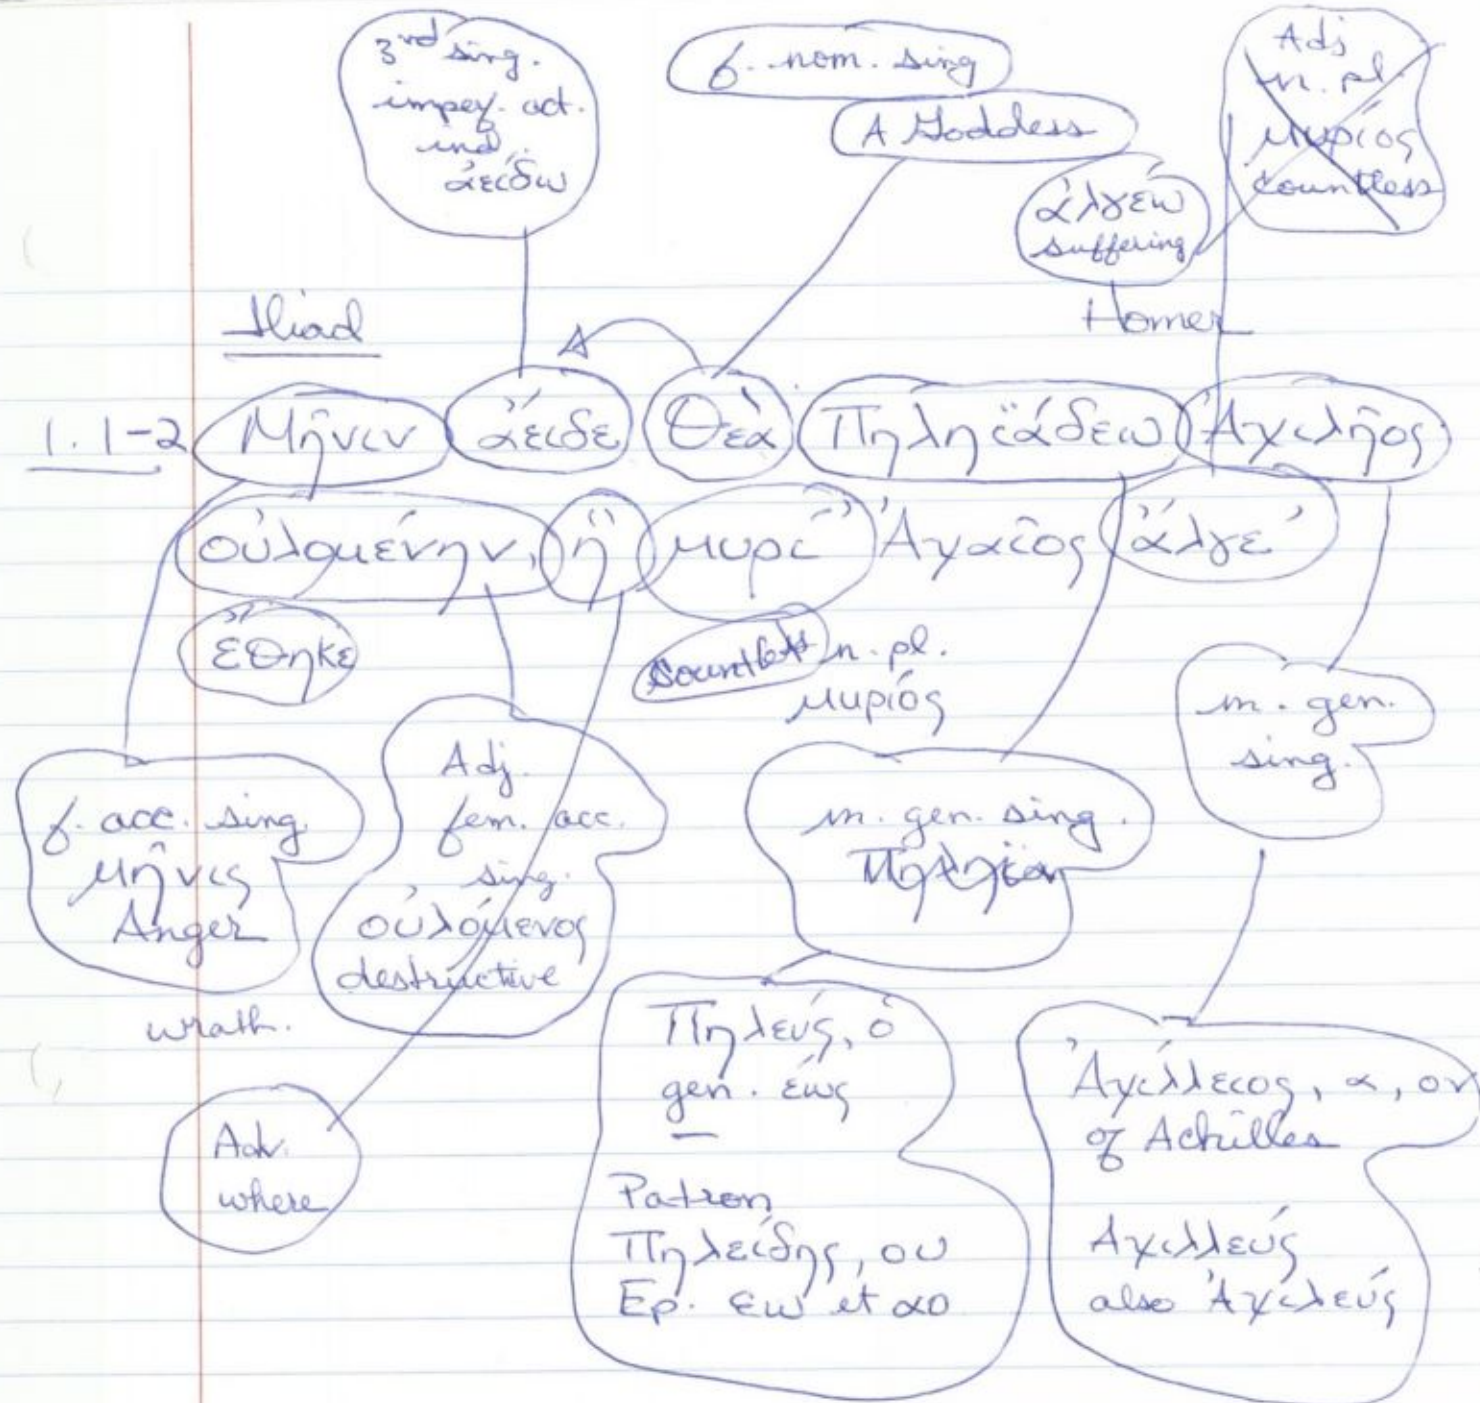 3rd sing.
impf. act.
ind.
ἀείδω
f. nom. sing
A Goddess
ἀλγέω
suffering
Adj
n. pl.
μυρίος
countless
Iliad
Homer
1. 1-2 Μῆνιν ἄειδε Θεὰ Πηληϊάδεω Ἀχιλῆος
οὐλομένην, ἣ μυρί' Ἀχαῖος ἄλγε'
ἔθηκε
n. pl.
μυριός
f. acc. sing.
μῆνις
Anger
wrath.
Adj.
fem. acc.
sing.
οὐλόμενος
destructive
m. gen. sing.
m. gen.
sing.
Adv.
where
Πηλεύς, ὁ
gen. έως
Patron
Πηλείδης, ου
Ep. εω et αο
Ἀχίλλειος, α, ον
of Achilles
Αχιλλεύς
also Ἀχιλεύς